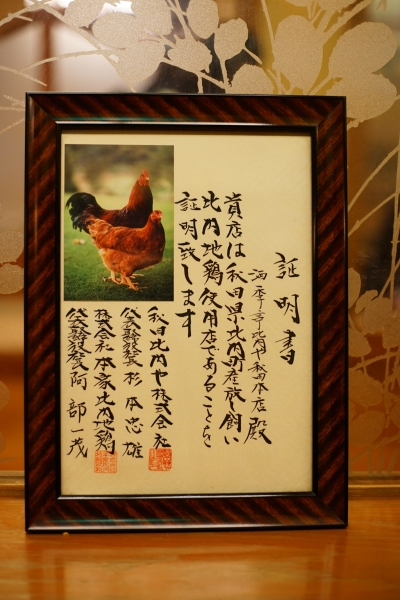 証明書
比内や秋田本店 殿
貴店は秋田県比内町産放し飼い
比内地鶏使用店であることを
証明致します
秋田比内や株式会社
杉本忠雄
株式会社本家比内地鶏
阿部一茂